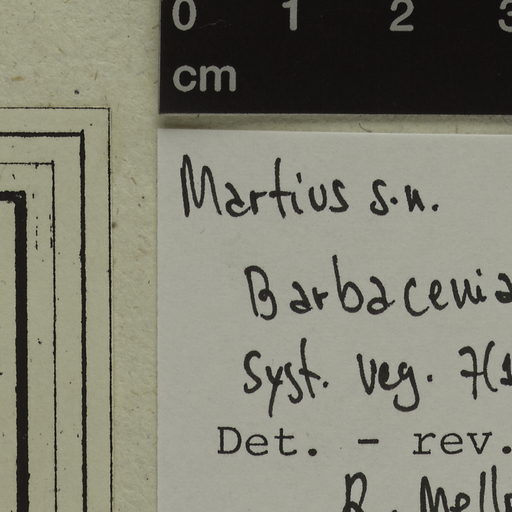 0 1 2 3
cm
Martius s.n.
Barbacenia
Syst. veg. 7(1
Det. - rev.
R. Mell